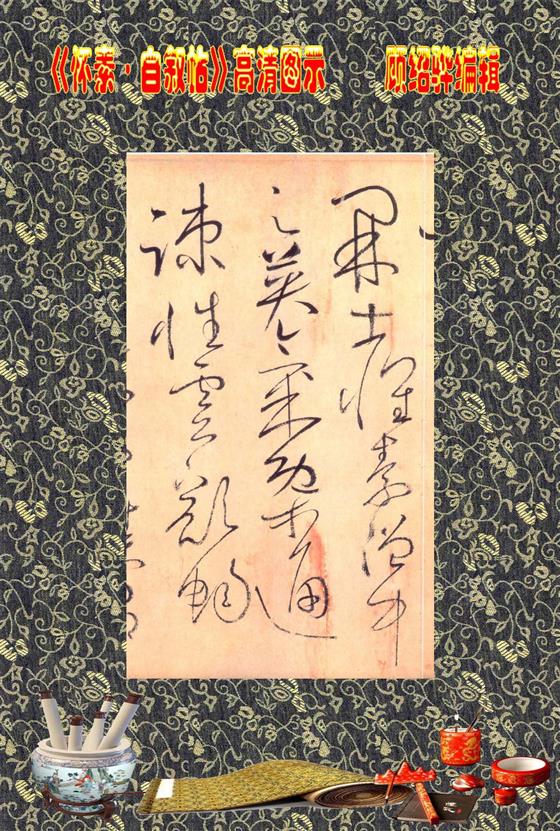 《怀素·自叙帖》高清图示 顾绍骅编辑
開士懷素僧中
之英氣概通
疎性靈豁暢